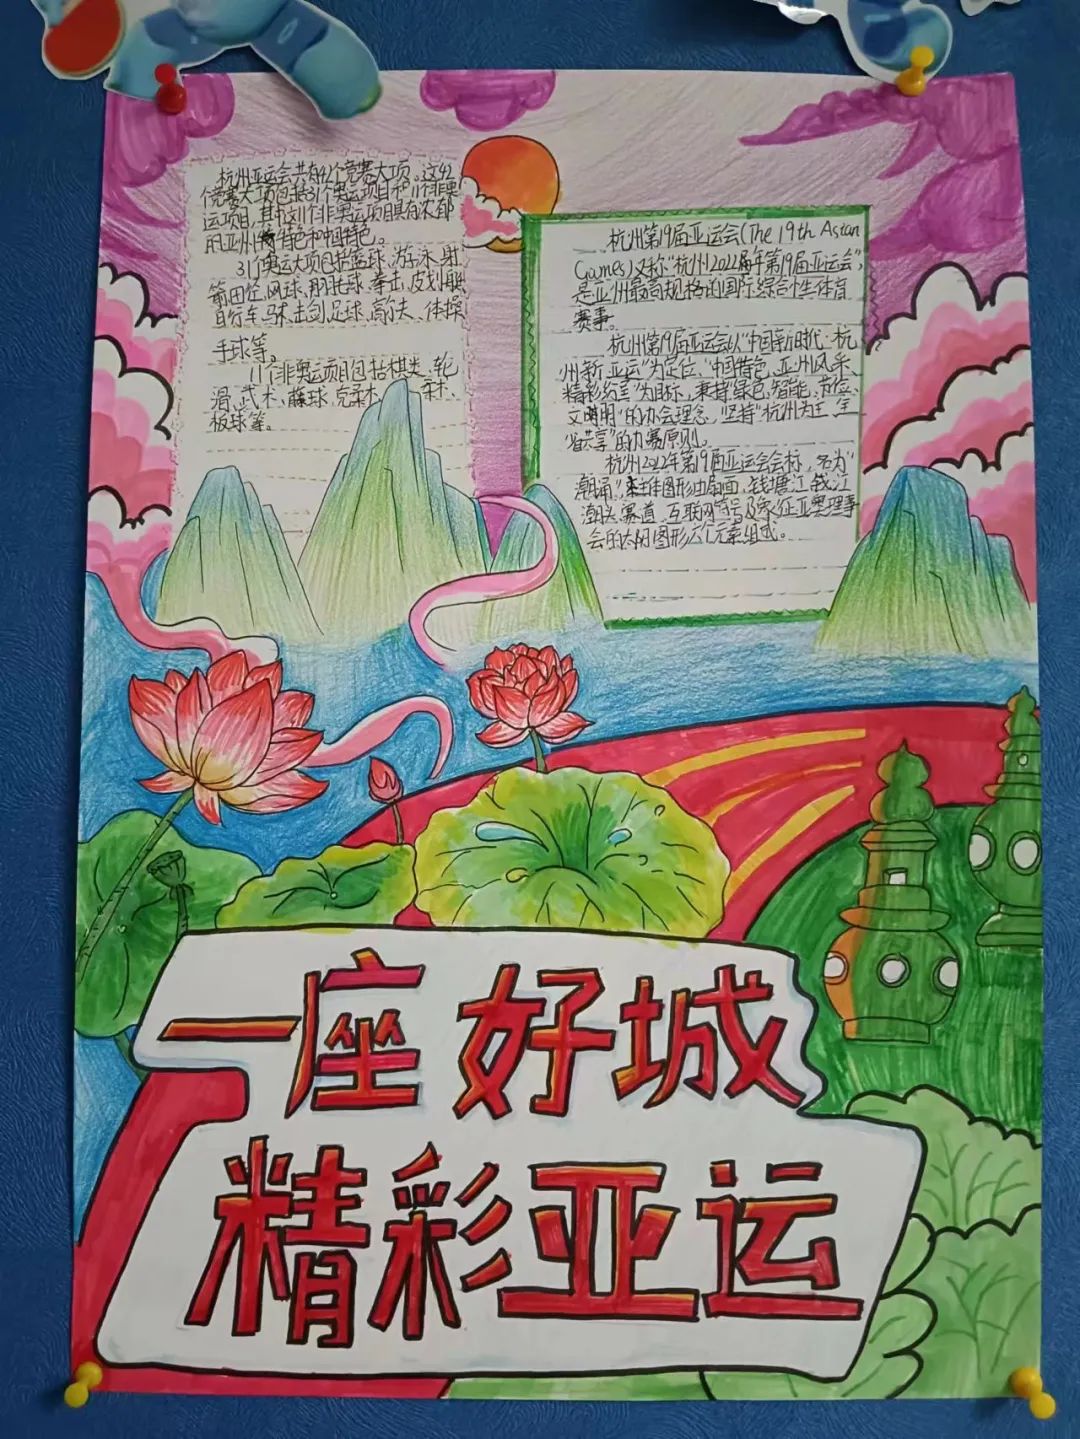 杭州亚运会共有42个竞赛大项。这42
个竞赛大项包括31个奥运项目和11个非奥
运项目，其中这11个非奥运项目具有浓郁
的亚州特色和中国特色。
31个奥运大项包括篮球、游泳、射
箭田径、网球、排球、拳击、皮划艇
自行车、马术、击剑、足球、高尔夫、体操
手球等。
11个非奥运项目包括棋类、轮
滑、武术、藤球、克柔术、柔术、
板球等。
杭州第19届亚运会(The 19th Asian
Games)又称"杭州2022年第19届亚运会",
是亚州最高规格的国际综合性体育
赛事。
杭州第19届亚运会以"中国新时代·杭
州新亚运"为定位、"中国特色、亚州风采、
精彩纷呈"为目标，秉持"绿色、智能、节俭、
文明"的办会理念，坚持"杭州为主，全
省共享"的办赛原则。
杭州2022年第19届亚运会会标，名为"
潮涌"主体图形由扇面、钱塘江、钱江
潮头、赛道、互联网符号及象征亚奥理事
会的太阳图形六个元素组成。
一座好城
精彩亚运